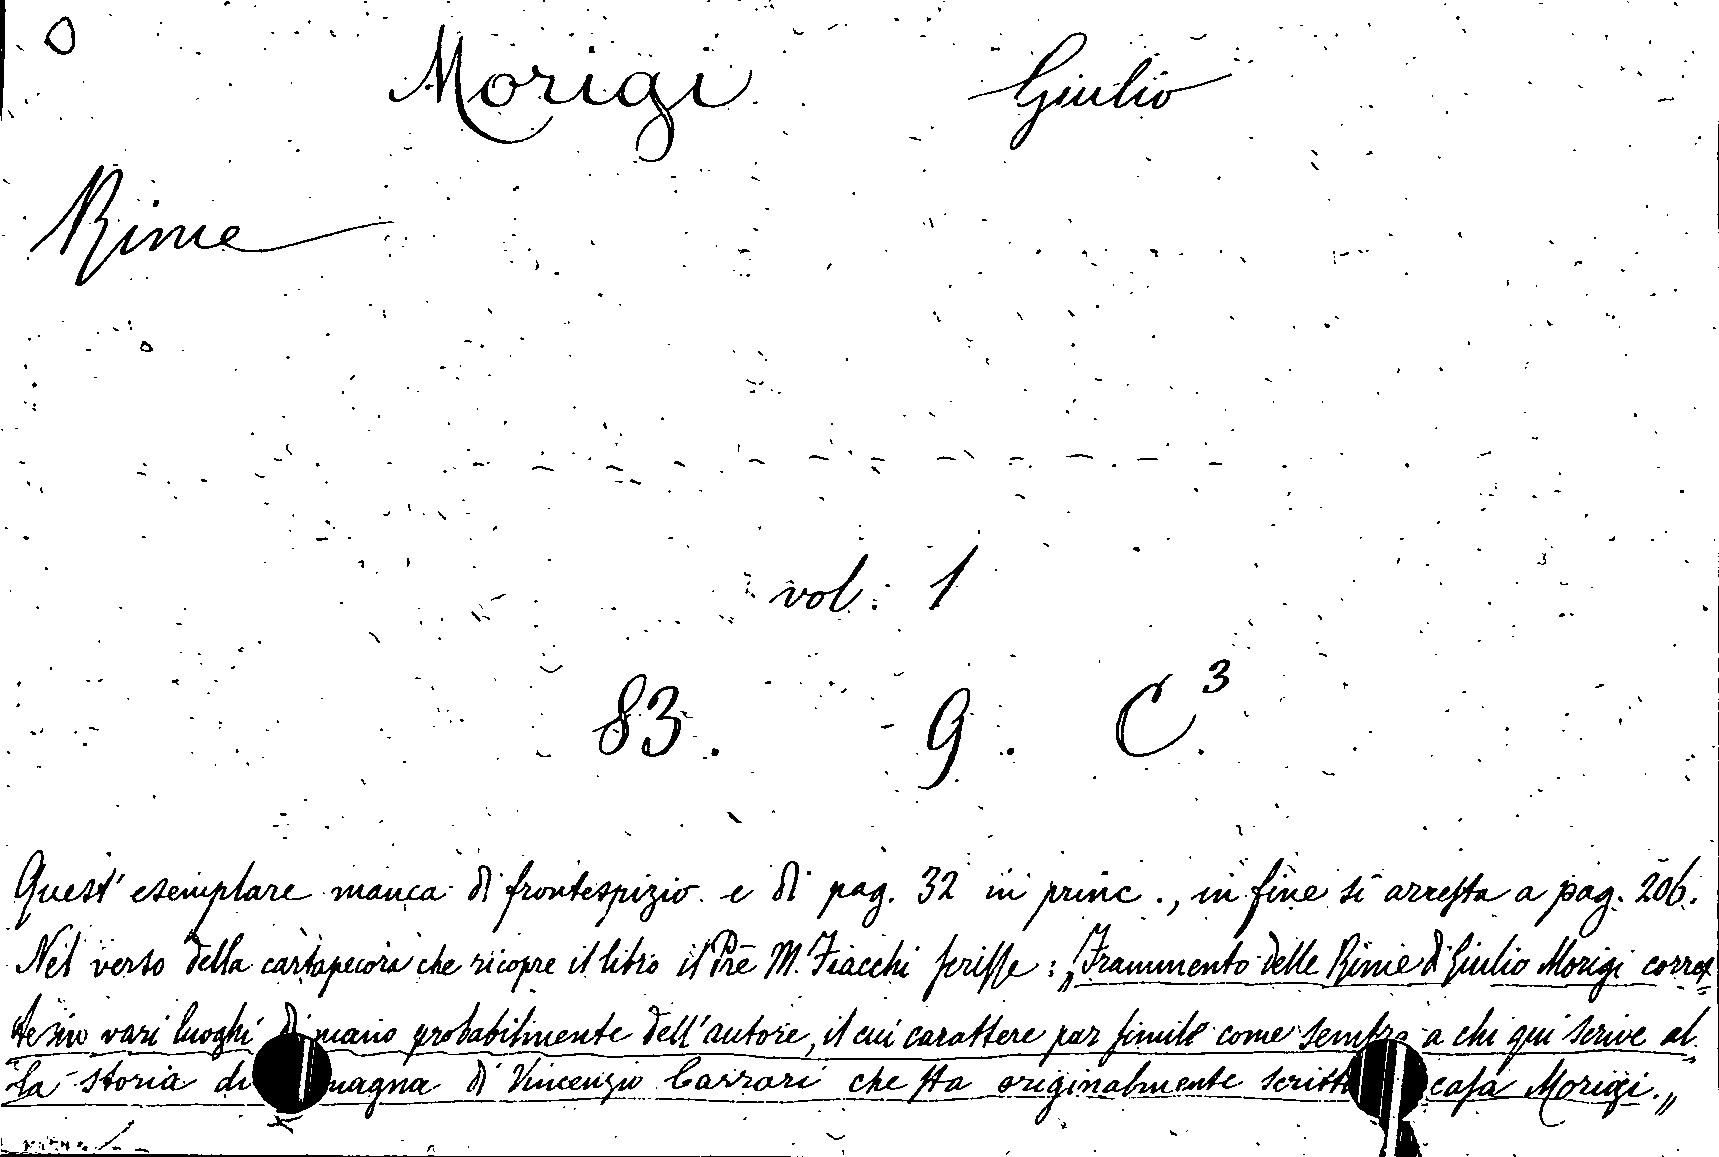 Morigi Giulio
Rime
vol: 1
83. 9. C.3
Quest' esemplare manca di frontespizio e di pag. 32 in princ., in fine si arresta a pag. 206.
Nel verso della cartapecora che ricopre il libro il Pre M. Fiacchi scrisse: „Frammento delle Rime di Giulio Morigi corret=
te in vari luoghi di mano probabilmente dell'autore, il cui carattere par simile come sembra a chi qui scrive al=
la storia di magna di Vincenzio Carrari che sta originalmente scritt casa Morigi.„